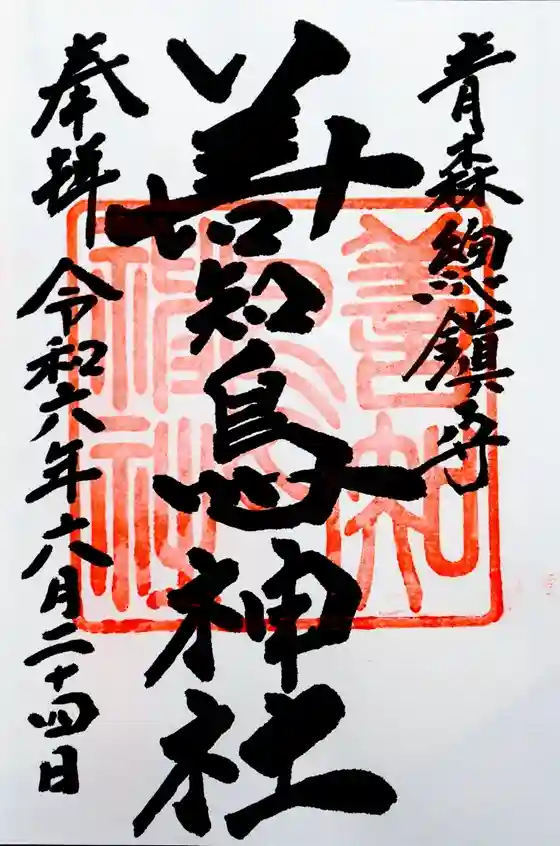 青森総鎮守
善知鳥神社
奉拝 令和六年六月二十四日
善知鳥神社